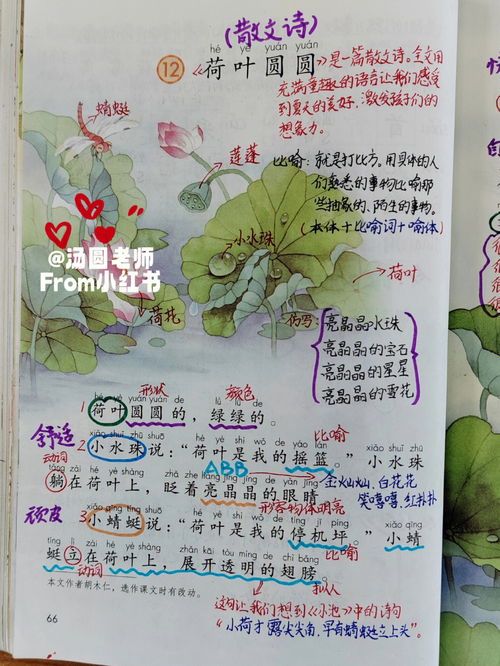 (散文诗)
hé yè yuán yuán
12 《荷叶圆圆》是一篇散文诗。全文用
充满童趣的语言让我们感受
到夏天的美好,激发孩子们的
想象力。
蜻蜓
莲蓬
比喻:就是打比方,用具体的人
们熟悉的事物比喻那
些抽象的、陌生的事物。
(本体+比喻词+喻体)
小水珠
荷叶
@汤圆老师
From小红书
荷花
仿写:
亮晶晶水珠
亮晶晶的宝石
亮晶晶的星星
亮晶晶的雪花
形状 颜色
hé yè yuán yuán de lǜ lǜ de
1 荷叶圆圆的,绿绿的。
舒适
比喻
xiǎo shuǐ zhū shuō hé yè shì wǒ de yáo lán xiǎo shuǐ zhū
2 小水珠说:“荷叶是我的摇篮。”小水珠
动词 ABB
tǎng zài hé yè shàng zhǎ zhe liàng jīng jīng de yǎn jīng
躺在荷叶上,眨着亮晶晶的眼睛
金灿灿、白花花
笑嘻嘻、红扑扑
形容物体明亮
顽皮
xiǎo qīng tíng shuō hé yè shì wǒ de tíng jī píng xiǎo qīng
3 小蜻蜓说:“荷叶是我的停机坪。”小蜻
比喻
tíng lì zài hé yè shàng zhǎn kāi tòu míng de chì bǎng
蜓立在荷叶上,展开透明的翅膀。
动词
拟人
本文作者胡木仁,选作课文时有改动。
这句让我们想到《小池》中的诗句
“小荷才露尖尖角,早有蜻蜓立上头”。
66